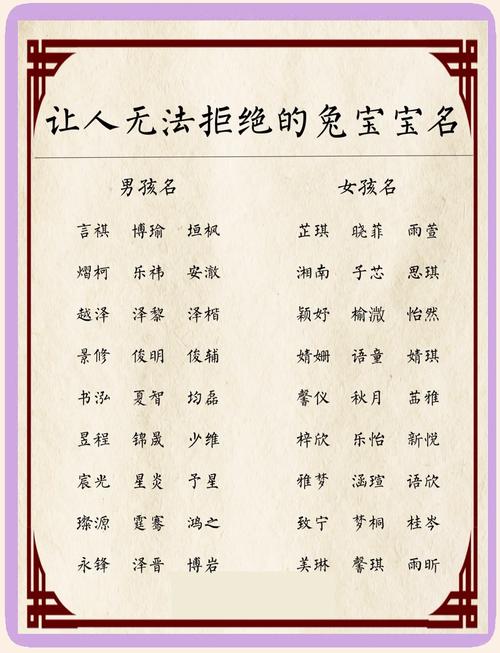 让人无法拒绝的兔宝宝名
男孩名 女孩名
言祺 博瑜 垣枫 芷琪 晓菲 雨萱
熠柯 乐祎 安澈 湘南 子芯 思琪
越泽 泽黎 泽楷 颖妤 榆溦 怡然
景修 俊明 俊辅 婧姗 语童 婧琪
书泓 夏智 均磊 馨仪 秋月 茜雅
昱程 锦晟 少维 梓欣 乐怡 新悦
宸光 星炎 予星 雅梦 涵瑄 语欣
璨源 霆骞 鸿之 致宁 梦桐 桂岑
永锋 泽晋 博岩 美琳 馨琪 雨昕